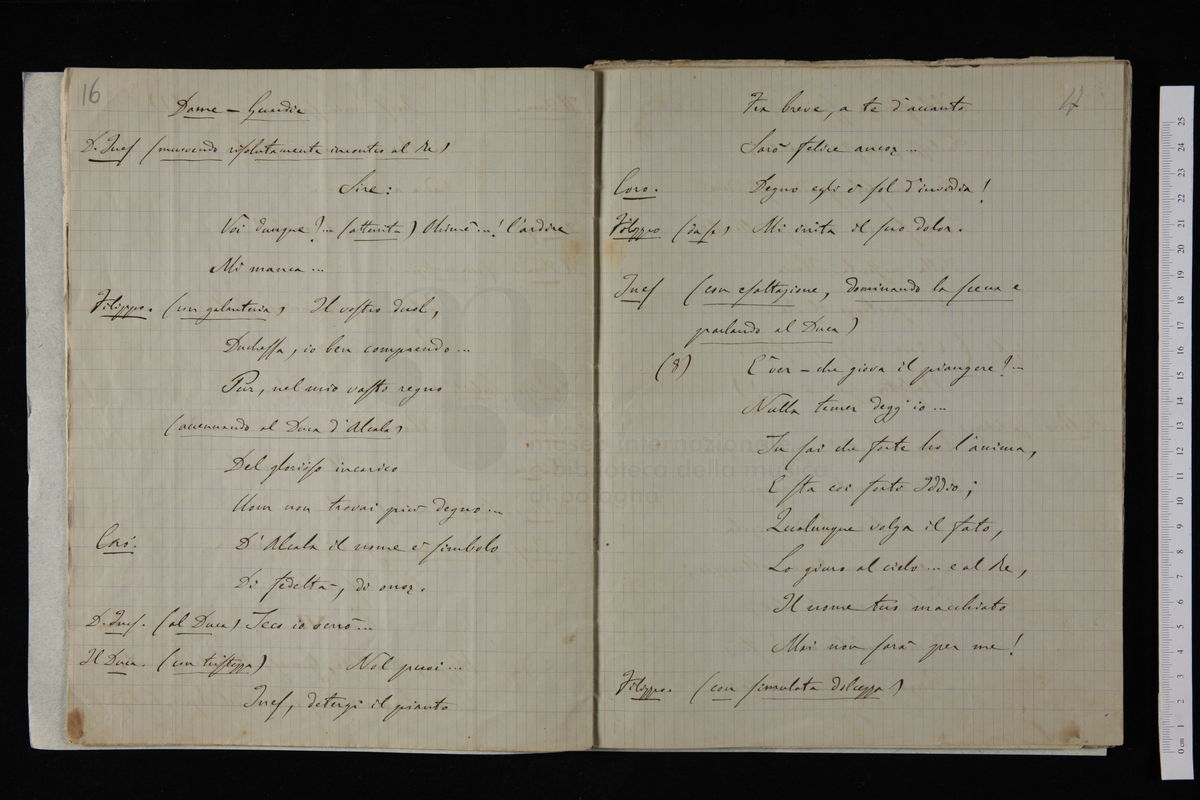 16
Dame – Guardie
D. Ines (muovendo risolutamente incontro al Re)
Sire:
Voi dunque?... (atterrita) Ohimè...! l'ardire
Mi manca...
Filippo. (con galanteria) Il vostro duol,
Duchessa, io ben comprendo...
Pur, nel mio vasto regno
(accennando al Duca d'Alcala)
Del glorioso incarico
Uom non trovai più degno...
Coro.
D'Alcala il nome è simbolo
Di fedeltà, di onor.
D. Ines. (al Duca) Teco io verrò...
Il Duca. (con tristezza) Nol puoi...
Ines, detergi il pianto
17
Fra breve, a te d'accanto
Sarò felice ancor...
Coro. Degno egli è sol d'invidia!
Filippo (da se) Mi irrita il suo dolor.
Ines (con esaltazione, dominando la scena e
parlando al Duca)
(8) È ver – che giova il piangere?...
Nulla temer degg'io...
Tu sai che forte ho l'anima,
E sta coi forti Iddio;
Qualunque volga il fato,
Lo giuro al cielo... e al Re,
Il nome tuo macchiato
Mai non sarà per me!
Filippo. (con simulata dolcezza)
museo internazionale
e biblioteca della musica
di bologna
0 cm 1 2 3 4 5 6 7 8 9 10 11 12 13 14 15 16 17 18 19 20 21 22 23 24 25